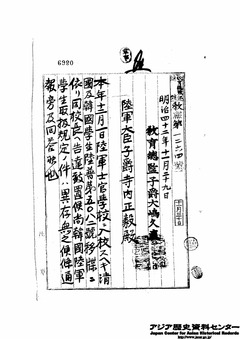 6920
教⬚第一二六四號
明治四十二年十一月二十九日
教育總監子爵大嶋久直
陸軍大臣子爵寺内正毅殿
本年十二月一日陸軍士官學校ヘ入校スヘキ清
國及韓國學生陸普第五〇八二號移牒ニ
依リ同校長ヘ告達致置候尚韓國陸軍
學生取扱規定ノ件ハ異存無之候條通
報旁及回答候也
アジア歴史資料センター
Japan Center for Asian Historical Records
http://www.jacar.go.jp/